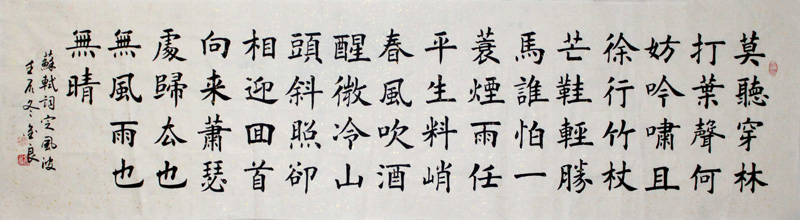 莫聽穿林
打葉聲何
妨吟嘯且
徐行竹杖
芒鞋輕勝
馬誰怕一
蓑煙雨任
平生料峭
春風吹酒
醒微冷山
頭斜照卻
相迎囬首
向来蕭瑟
處歸厺也
無風雨也
無晴
蘇軾詞定風波
壬辰冬良